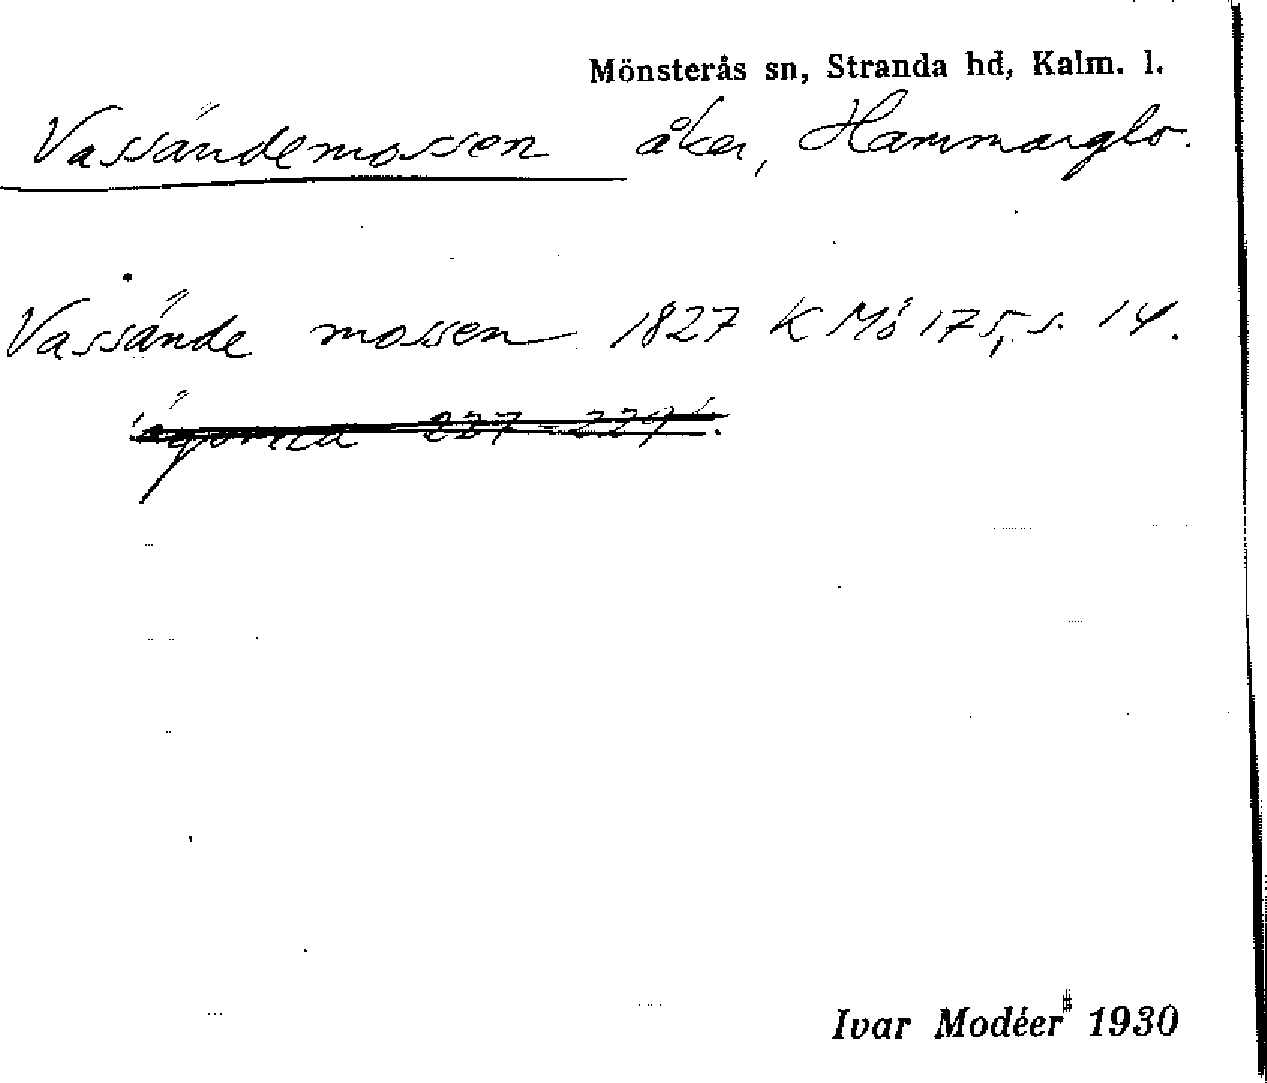 Mönsterås sn, Stranda hd, Kalm. l.
Vassändemossen åker, Hammarglo.
Vassände mossen 1827 K Mö 175, s. 14.
227-229.
Ivar Modéer 1930